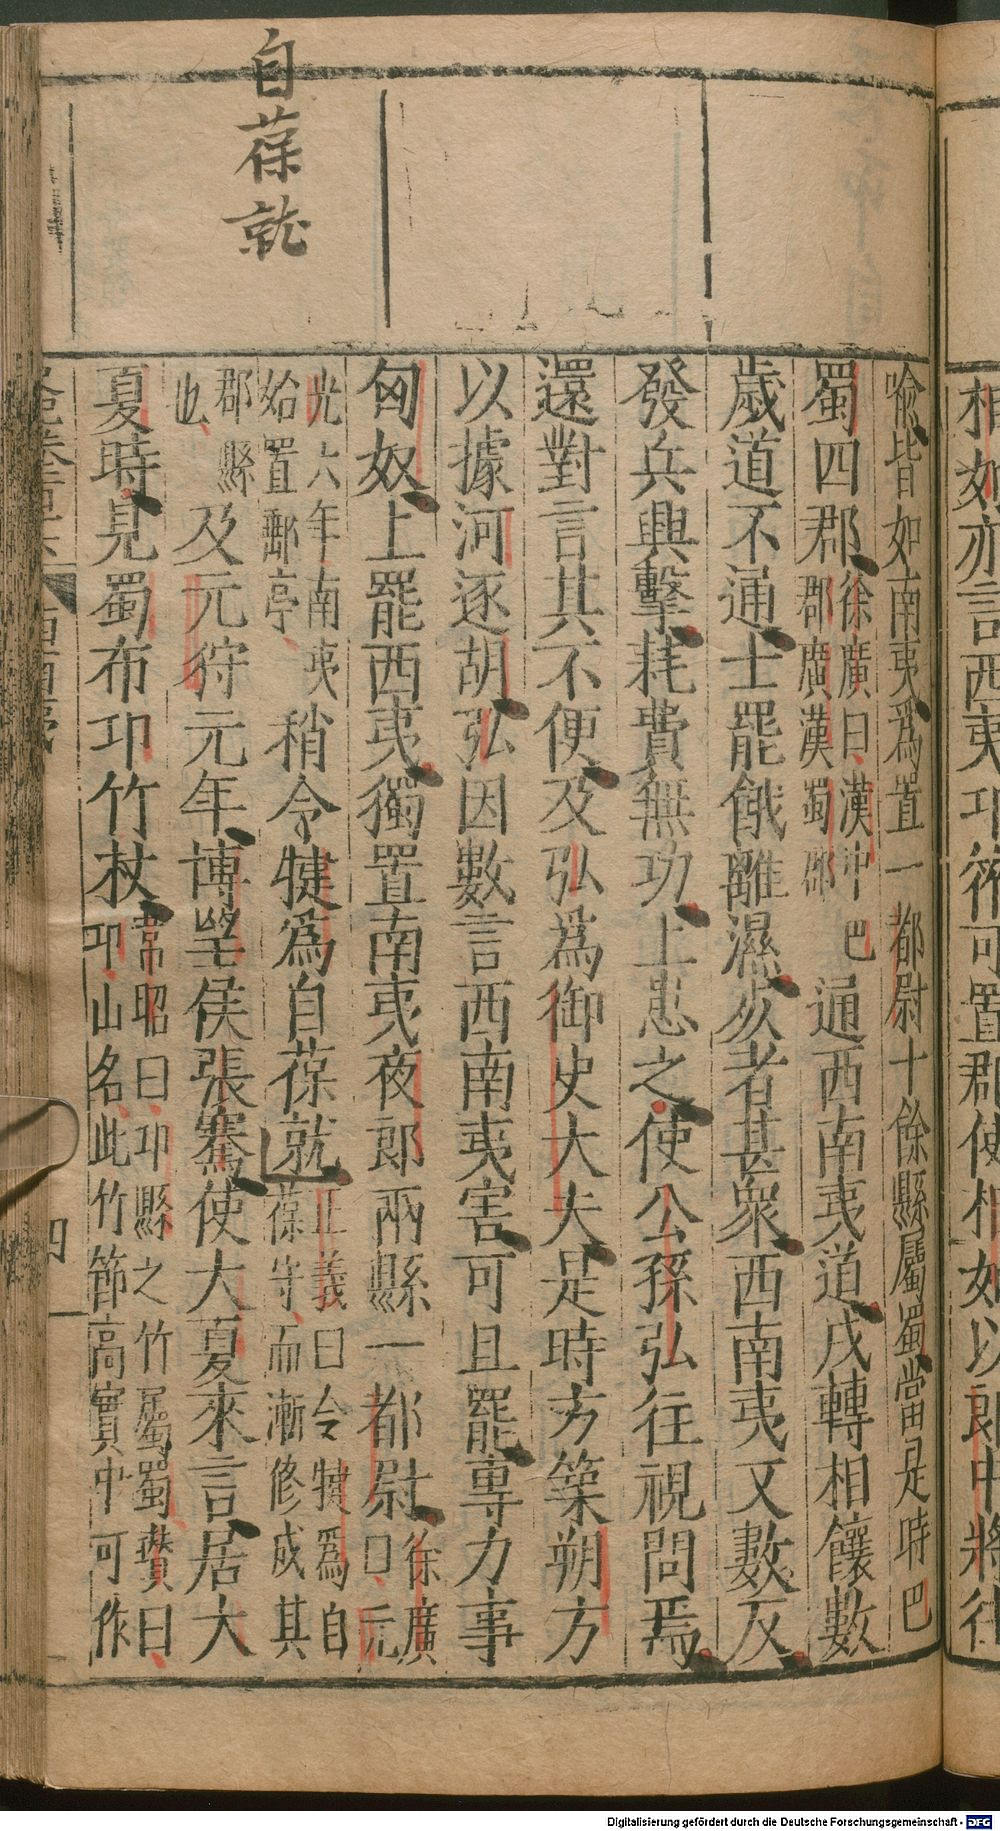 自葆就
喩皆如南夷爲置一都尉十餘縣屬蜀當是時巴
蜀四郡
徐廣曰漢中巴
郡廣漢蜀郡
通西南夷道戍轉相饟數
歲道不通士罷餓離濕死者甚衆西南夷又數反
發兵興擊耗費無功上患之使公孫弘往視問焉
還對言其不便及弘爲御史大夫是時方築朔方
以據河逐胡弘因數言西南夷害可且罷專力事
匈奴上罷西夷獨置南夷夜郎兩縣一都尉
徐廣
曰元
光六年南夷
始置郵亭
稍令犍爲自葆就
正義曰令犍爲自
葆守而漸修成其
郡縣
也
及元狩元年博望侯張騫使大夏來言居大
夏時見蜀布邛竹杖
韋昭曰邛縣之竹屬蜀瓚曰
邛山名此竹節高實中可作
四
相如亦言西夷邛筰可置郡使相如以郎中將往
Digitalisierung gefördert durch die Deutsche Forschungsgemeinschaft - DFG